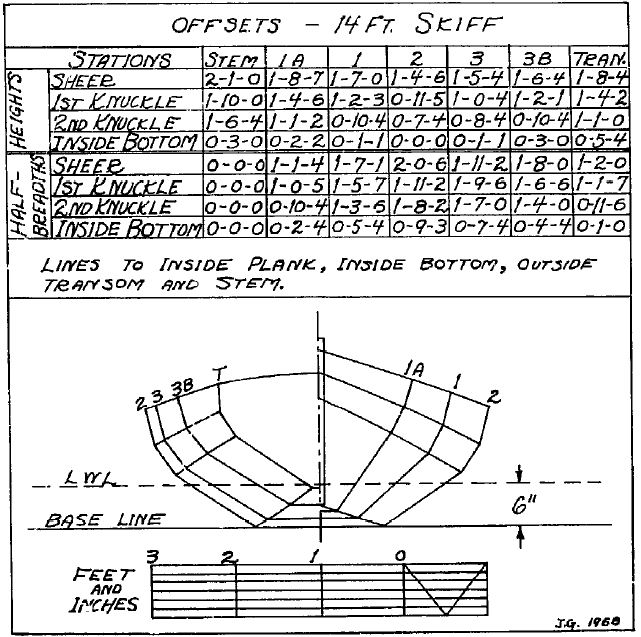 OFFSETS - 14 FT. SKIFF
STATIONS STEM 1A 1 2 3 3B TRAN.
HEIGHTS
SHEER 2-1-0 1-8-7 1-7-0 1-4-6 1-5-4 1-6-4 1-8-4
1ST KNUCKLE 1-10-0 1-4-6 1-2-3 0-11-5 1-0-4 1-2-1 1-4-2
2ND KNUCKLE 1-6-4 1-1-2 0-10-4 0-7-4 0-8-4 0-10-4 1-1-0
INSIDE BOTTOM 0-3-0 0-2-2 0-1-1 0-0-0 0-1-1 0-3-0 0-5-4
HALF-BREADTHS
SHEER 0-0-0 1-1-4 1-7-1 2-0-6 1-11-2 1-8-0 1-2-0
1ST KNUCKLE 0-0-0 1-0-5 1-5-7 1-11-2 1-9-6 1-6-6 1-1-7
2ND KNUCKLE 0-0-0 0-10-4 1-3-6 1-8-2 1-7-0 1-4-0 0-11-6
INSIDE BOTTOM 0-0-0 0-2-4 0-5-4 0-9-3 0-7-4 0-4-4 0-1-0
LINES TO INSIDE PLANK, INSIDE BOTTOM, OUTSIDE
TRANSOM AND STEM.
2 3 3B T 1A 1 2
LWL
6"
BASE LINE
3 2 1 0
FEET
AND
INCHES
J.G. 1968